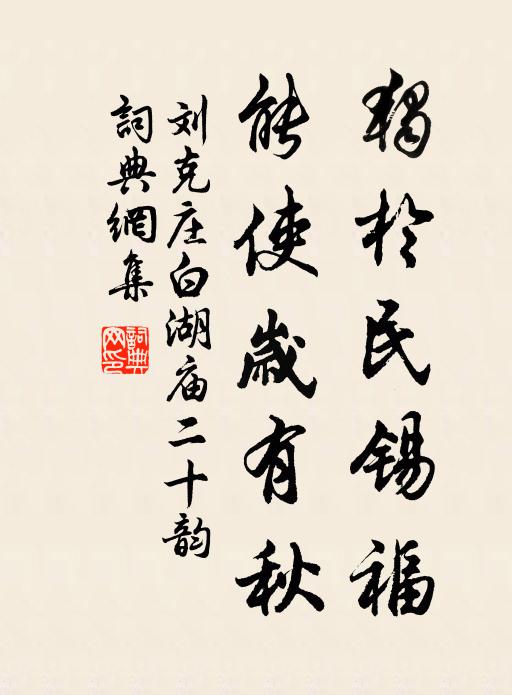 獨於民錫福
能使歲有秋
刘克庄白湖庙二十韵
詞典網集
詞典網印